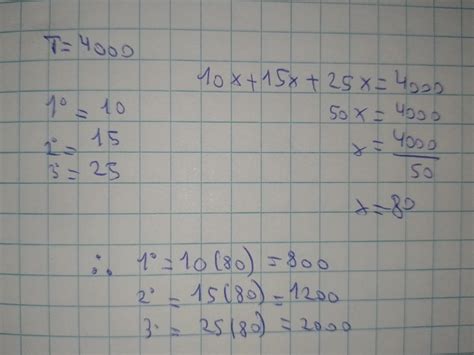 T=4000
10x+15x+25x=4000
50x=4000
x=4000/50
x=80
1°=10
2°=15
3°=25
∴ 1°=10(80)=800
2°=15(80)=1200
3°=25(80)=2000